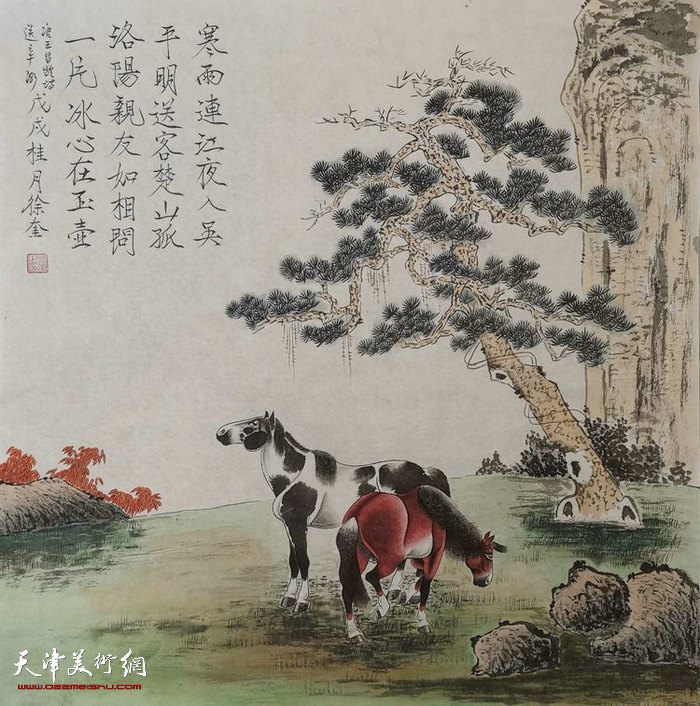 寒雨連江夜入吴
平明送客楚山孤
洛陽親友如相問
一片冰心在玉壺
唐王昌龄诗
送辛渐 戊戌桂月徐奎
天津美術網
www.022meishu.com